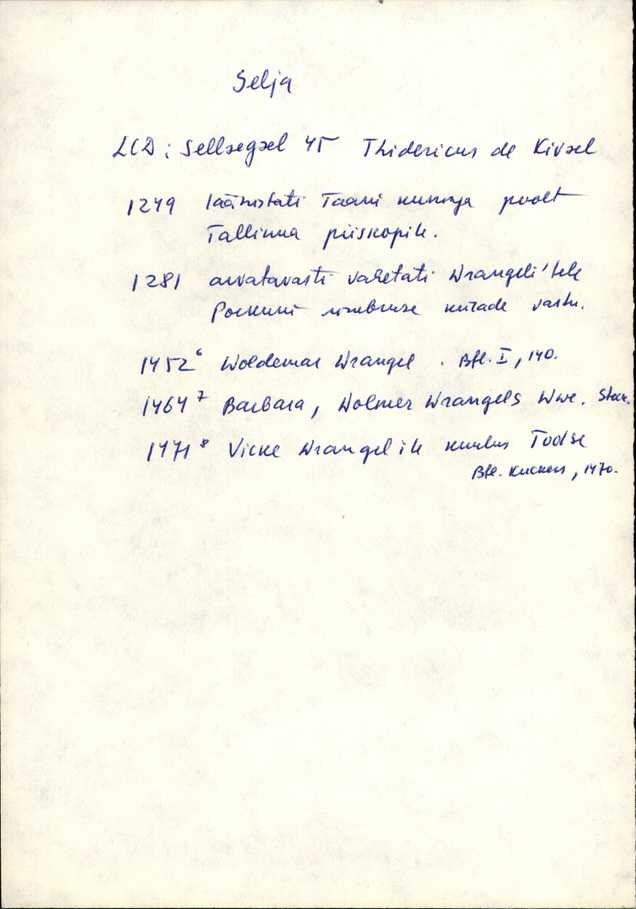 Selja
LCD: Sellægæl 45 Thidericus de Kivæl
1249 läänistati Taani kuninga poolt
Tallinna piiskopile.
1281 arvatavasti vahetati Wrangeli'tele
Porkuni ümbruse külade vastu.
1452⁶ Woldemar Wrangel. Bfl. I, 140.
1464⁷ Barbara, Wolmer Wrangels Wwe.
1471⁸ Vicke Wrangel'ile kuulus Toolse
Bfl. Kuckers, 1470.